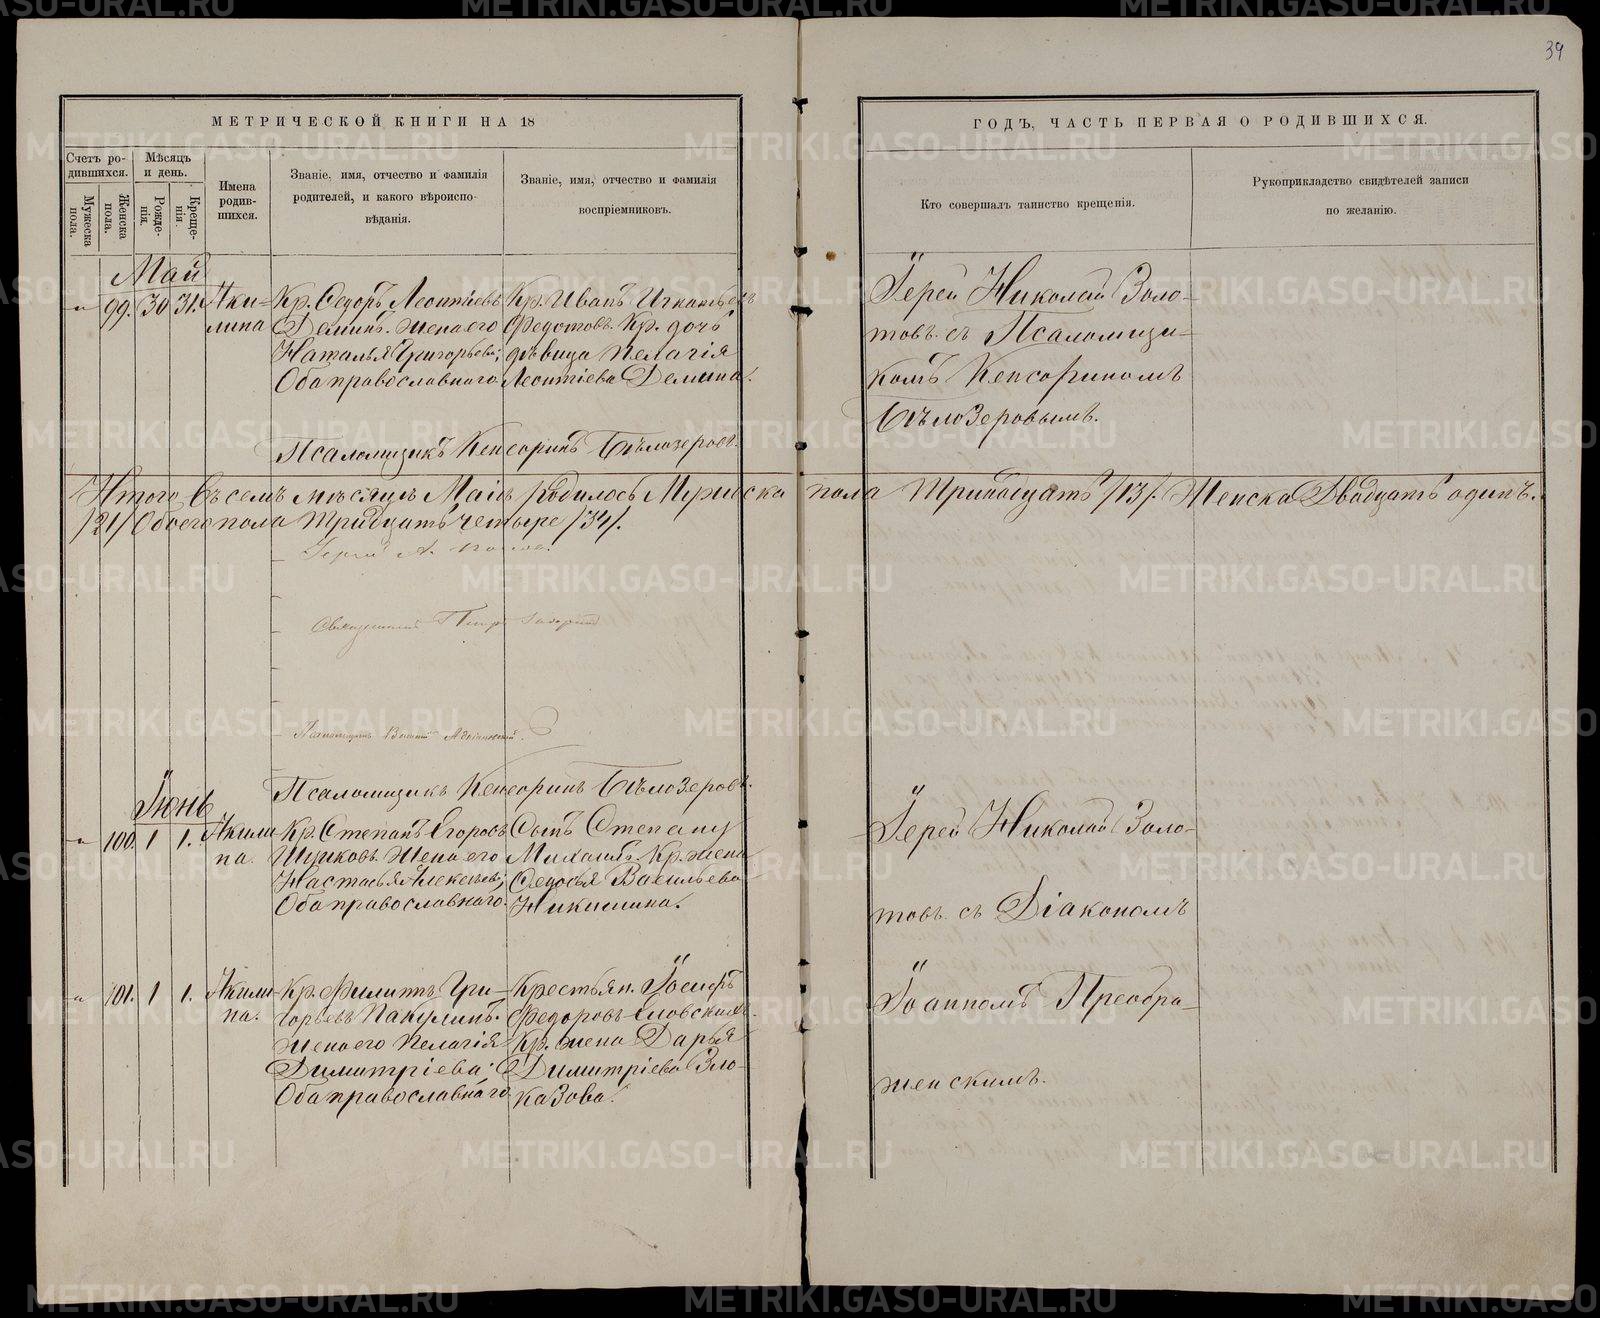 39
МЕТРИЧЕСКОЙ КНИГИ НА 18
ГОДЪ, ЧАСТЬ ПЕРВАЯ О РОДИВШИХСЯ.
Счетъ ро-
дившихся.
Мужеска
пола.
Женска
пола.
Мѣсяцъ
и день.
Рожде-
нія.
Креще-
нія.
Имена
родив-
шихся.
Званіе, имя, отчество и фамилія
родителей, и какого вѣроиспо-
вѣданія.
Званіе, имя, отчество и фамилія
воспріемниковъ.
Кто совершалъ таинство крещенія.
Рукоприкладство свидѣтелей записи
по желанію.
Май
99. 30 31.
Аки-
лина
Кр. Ѳедоръ Леонтіевъ
Деминъ. жена его
Наталья Григорьева;
Оба православнаго
Кр. Иванъ
Федотовъ. Кр. дочь
дѣвица Пелагія
Леонтіева Демина.
Іерей Николай Золо-
товъ съ Псаломщи-
комъ Кенсориномъ
Бѣлозеровымъ.
Псаломщикъ Кенсоринъ Бѣлозеровъ.
Итого въ семъ мѣсяцѣ Маіѣ родилось Мужеска пола Тринадцать /13/. Женска Двадцать одинъ.
/21/ Обоего пола тридцать четыре /34/.
Іерей А.
Священникъ Петръ
Псаломщикъ
Псаломщикъ Кенсоринъ Бѣлозеровъ.
Іюнь
100. 1 1.
Акили
на.
Кр. Степанъ Егоровъ
жена его
Настасья Алексѣева;
Оба православнаго.
Сынъ Степану
Михаилъ. Кр. жена
Ѳедосья Васильева
Никишина.
Іерей Николай Золо-
товъ съ Діакономъ
101. 1 1.
Акили
на.
Кр. Филиппъ Гри-
горьевъ Пакулинъ.
жена его Пелагія
Димитріева;
Оба православнаго
Крестьян. Іосифъ
Федоровъ Словскихъ.
Кр. жена Дарья
Димитріева Зло-
казова.
Іоанномъ Преобра-
женскимъ.
METRIKI.GASO-URAL.RU